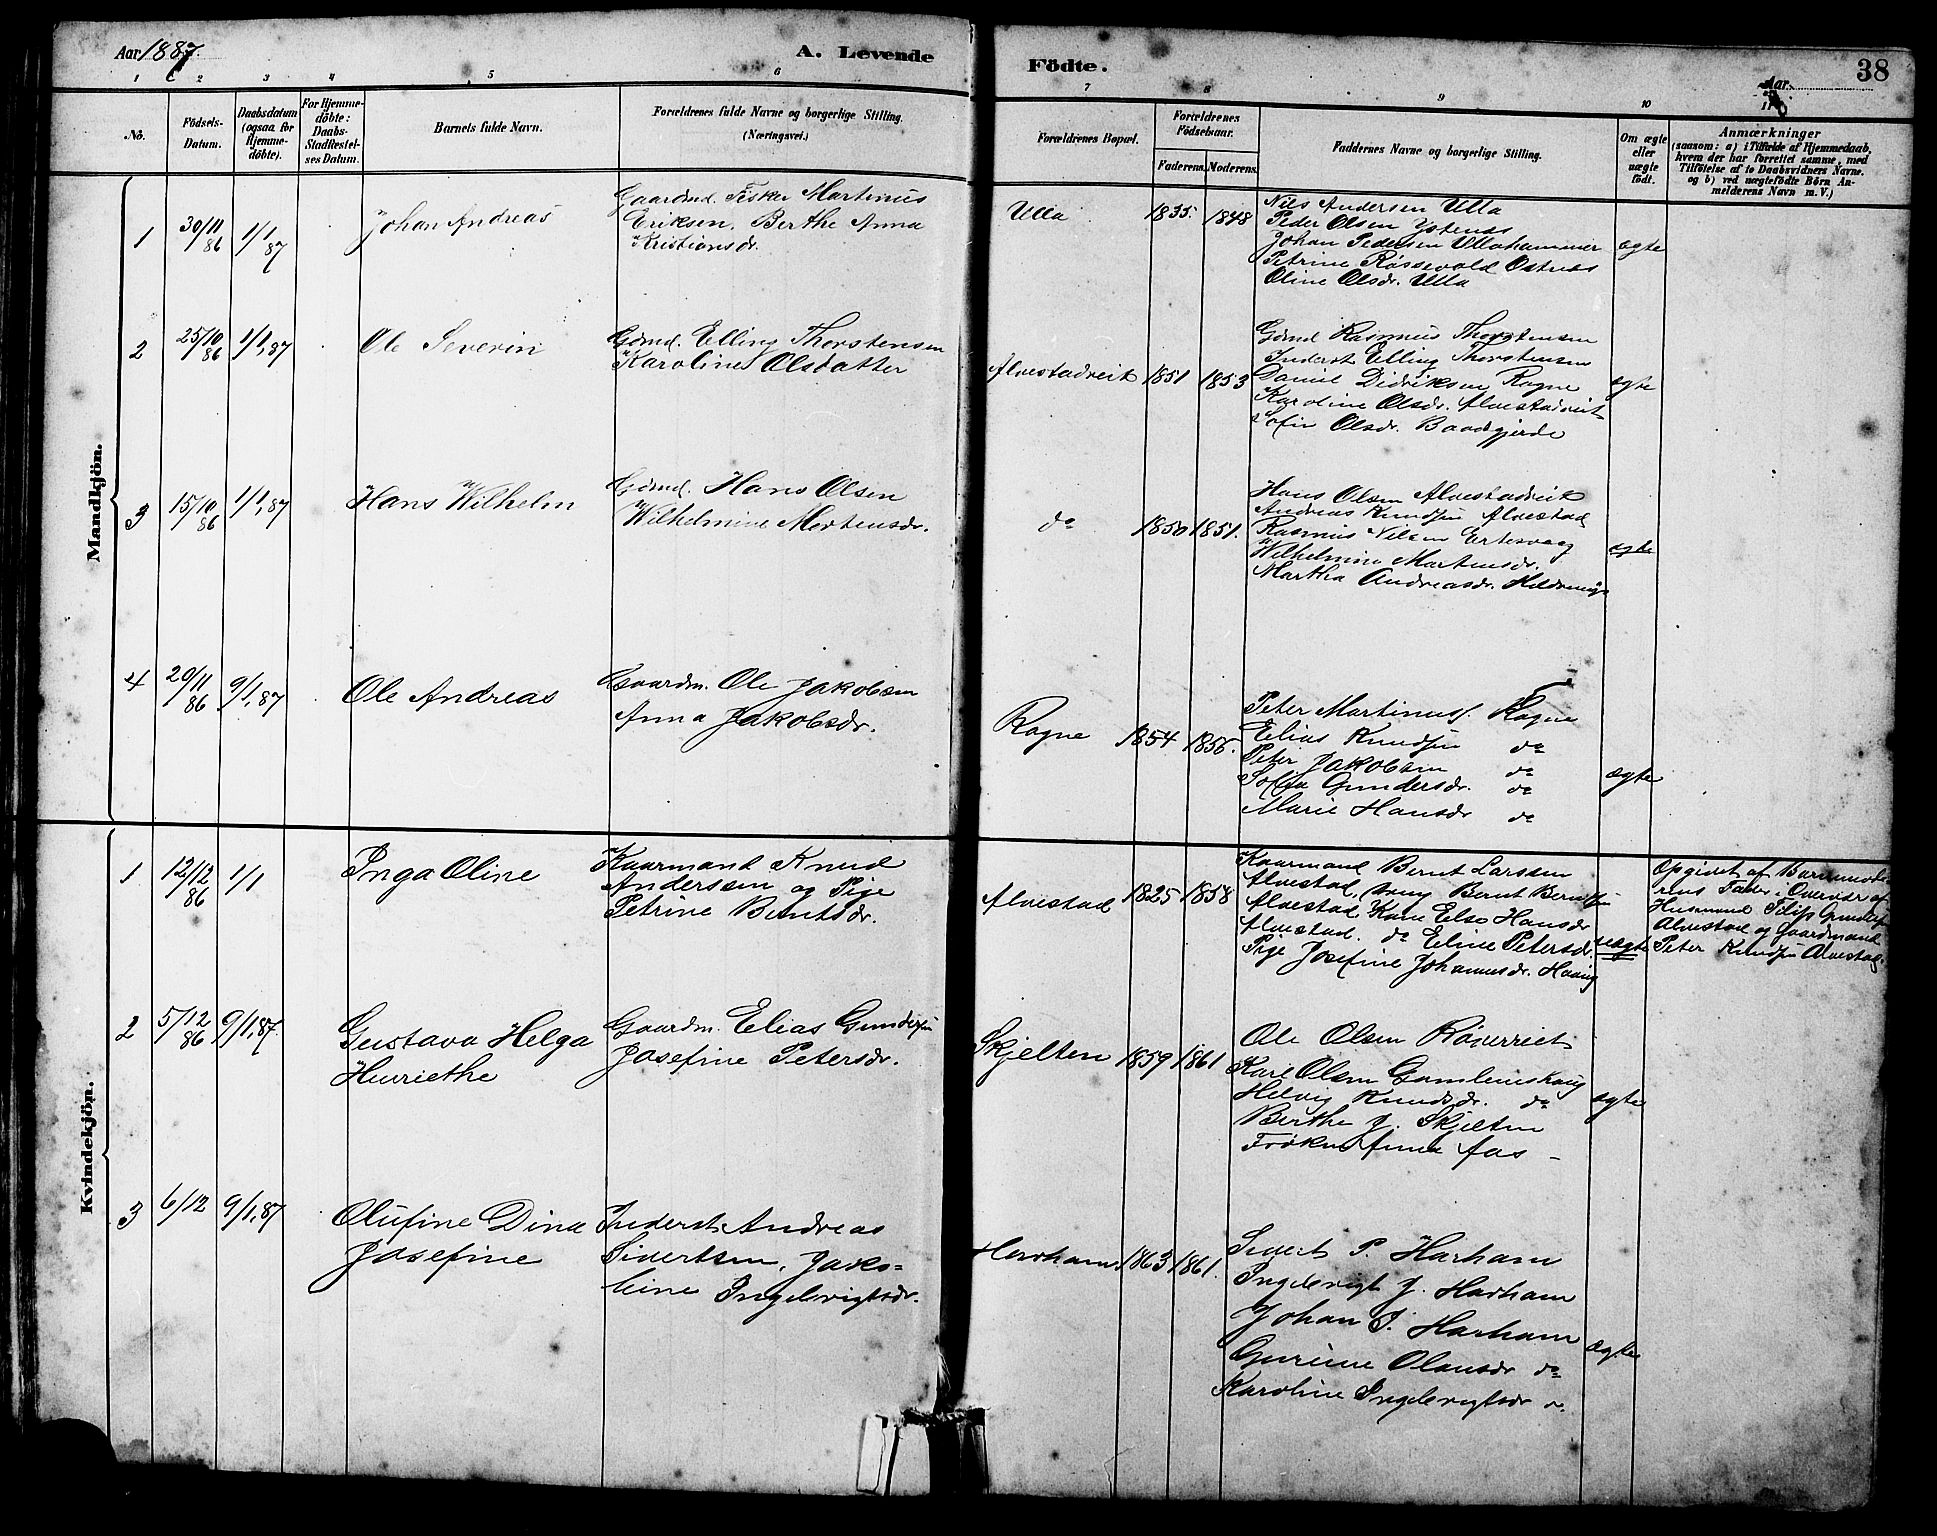 Aar 1887.
A. Levende
Födte.
Aar
38
1 2 3 4 5 6 7 8 9 10 11
No.
Födsels-
Datum.
Daabsdatum
(ogsaa for
Hjemme-
döbte).
For Hjemme-
döbte:
Daabs-
Stadfæstel-
ses Datum.
Barnets fulde Navn.
Forældrenes fulde Navne og borgerlige Stilling.
(Næringsvei.)
Forældrenes Bopæl.
Forældrenes
Födselsaar.
Faderens. Moderens.
Faddernes Navne og borgerlige Stilling.
Om ægte
eller
uægte
födt.
Anmærkninger
(saasom: a) i Tilfælde af Hjemmedaab,
hvem der har forrettet samme, med
Tilföielse af to Daabsvidners Navne.
og b) ved uægtefödte Börn An-
melderens Navn m.V.)
Mandkjön.
1
30/11 86
1/1 87
Johan Andreas
Gaardmd. Fisker Martinus
Eriksen, Berthe Anna
Kristiansdr.
Ulla
1835. 1848
Nils Andersen Ulla
Peder Olsen Ystenæs
Johan Pedersen Ullahammer
Petrine Røssevold Østnæs
Oline Olsdr. Ulla
ægte
2
25/10 86
1/1, 87
Ole Severin
Gdmd. Elling Thorstensen
Karoline Olsdatter
Alvestadvik
1851 1853
Gdmd Rasmus Thorstensen
Inderst Elling Thorstensen
Daniel Didriksen Rogne
Karoline Olsdr. Alvestadvik
Sofie Olsdr. Baadsgjerde
ægte
3
15/10 86
1/1, 87
Hans Wilhelm
Gdmd. Hans Olsen
Wilhelmine Mortensdr.
do
1850 1851.
Hans Olsen Alvestadvik
Andreas Knudsen Alvestad
Rasmus Nilsen Ertesvaag
Wilhelmine Martensdr.
Martha Andreasdr.
ægte
4
20/11 86
9/1, 87
Ole Andreas
Gaardm. Ole Jakobsen
Anna Jakobsdr.
Rogne
1854 1856.
Peter Martinuss. Rogne
Elias Knudsen do
Peter Jakobsen do
Sofia Gundersdr. do
Marie Hansdr do
ægte
Kvindekjön.
1
12/12 86
1/1
Inga Oline
Kaarmand Knud
Anderssen og Pige
Petrine Berntsdr.
Alvestad
1825 1858
Kaarmand Bernt Larssen
Alvestad, Ung Bernt Berntsen
Alvestad, Kone Else Hansdr
Alvestad. do Eline Petersdr.
Pige Josefine Johannesdr. Haaing
uægte
Opgivet af Barnemode-
rens Fader i Overvær af
Husmand Filip Gundersen
Alvestad og Gaardmand
Peter Knudsen Alvestad.
2
5/12 86
9/1, 87.
Gustava Helga
Henriethe
Gaardm. Elias Gundersen
Josefine Petersdr.
Skjelten
1859 1861
Ole Olsen
Karl Olsen
Helvig Knudsdr. do
Berthe J. Skjelten
Frøken Anna Aas -
ægte
3
6/12
9/1, 87
Olufine Dina
Josefine
Inderst Andreas
Sivertsen, Jako=
bine Ingebrigtsdr.
Harham
1863 1861.
Sivert P. Harham
Ingebrigt J. Harham
Johan I. Harham
Gurine Olausdr do
Karoline Ingebrigtsdr do.
ægte